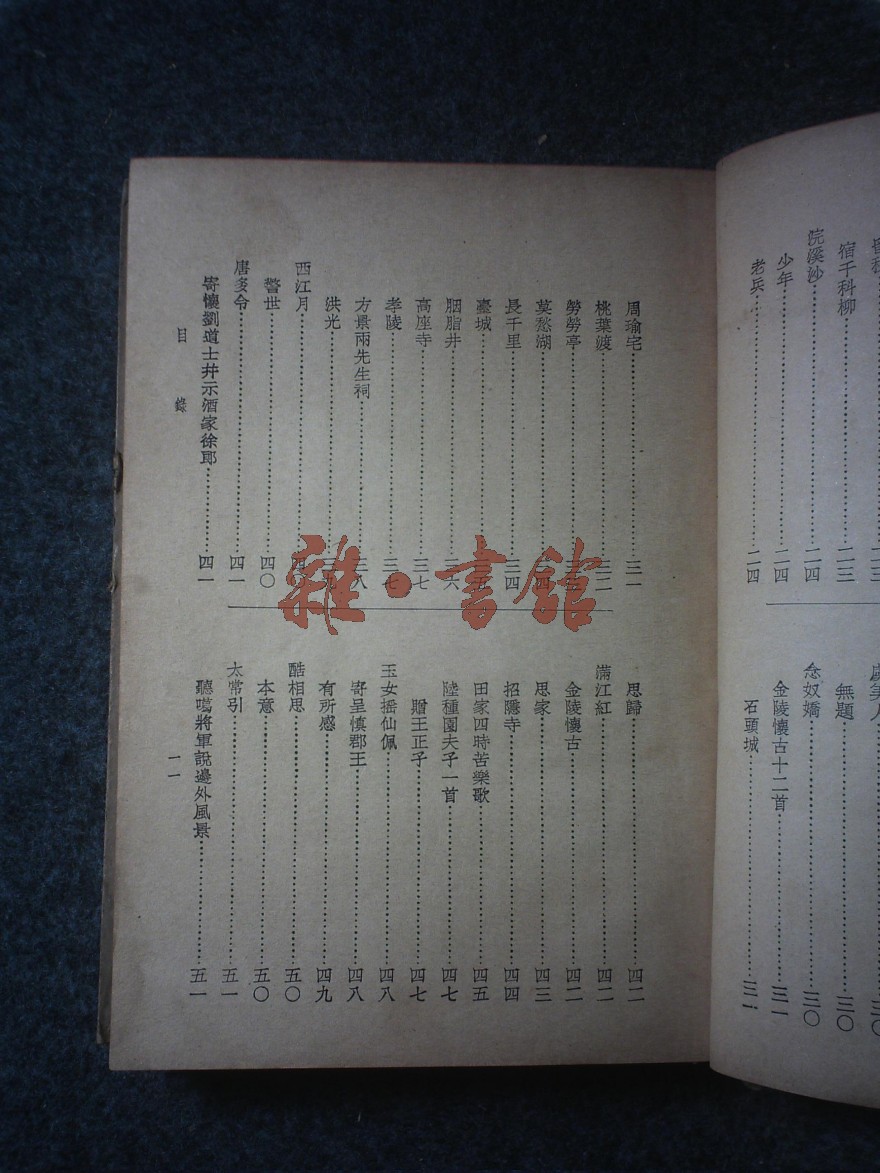 宿千科柳……二三
浣溪沙……二四
少年……二四
老兵……二四
虞美人……三〇
無題……三〇
念奴嬌……三〇
金陵懷古十二首……三一
石頭城……三一
周瑜宅……三一
桃葉渡……三二
勞勞亭……
莫愁湖……
長千里……三四
臺城……三五
胭脂井……三六
高座寺……三七
孝陵……
方景兩先生祠……三八
洪光……三九
西江月……四〇
警世……四〇
唐多令……四一
寄懷劉道士幷示酒家徐郎……四一
思歸……四二
滿江紅……四二
金陵懷古……四二
思家……四三
招隱寺……四四
田家四時苦樂歌……四五
陸種園夫子一首……四七
贈王正子……四七
玉女搖仙佩……四八
寄呈慎郡王……四八
有所感……四九
酷相思……五〇
本意……五〇
太常引……五一
聽噶將軍說邊外風景……五一
目錄
一一
雜·書館